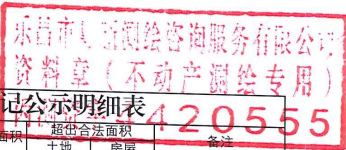 乐昌市 测绘咨询服务有限公司
资料章（不动产测绘专用）
420555
记公示明细表
面积 超出合法面积 备注
土地 房屋